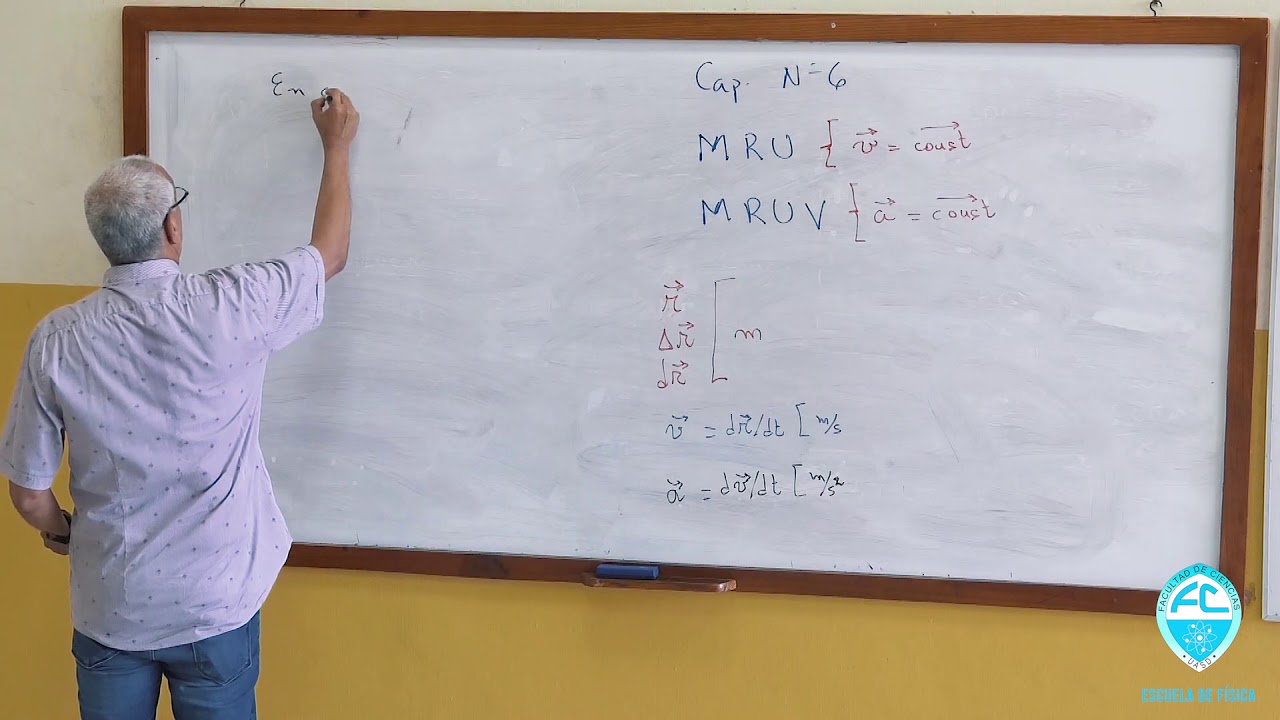 En
Cap. N=6
MRU { v⃗ = const
MRUV { a⃗ = const
r⃗
Δr⃗ [ m
dr⃗
v⃗ = dr⃗/dt [ m/s
a⃗ = dv⃗/dt [ m/s²
FACULTAD DE CIENCIAS
FC
UASD
ESCUELA DE FÍSICA